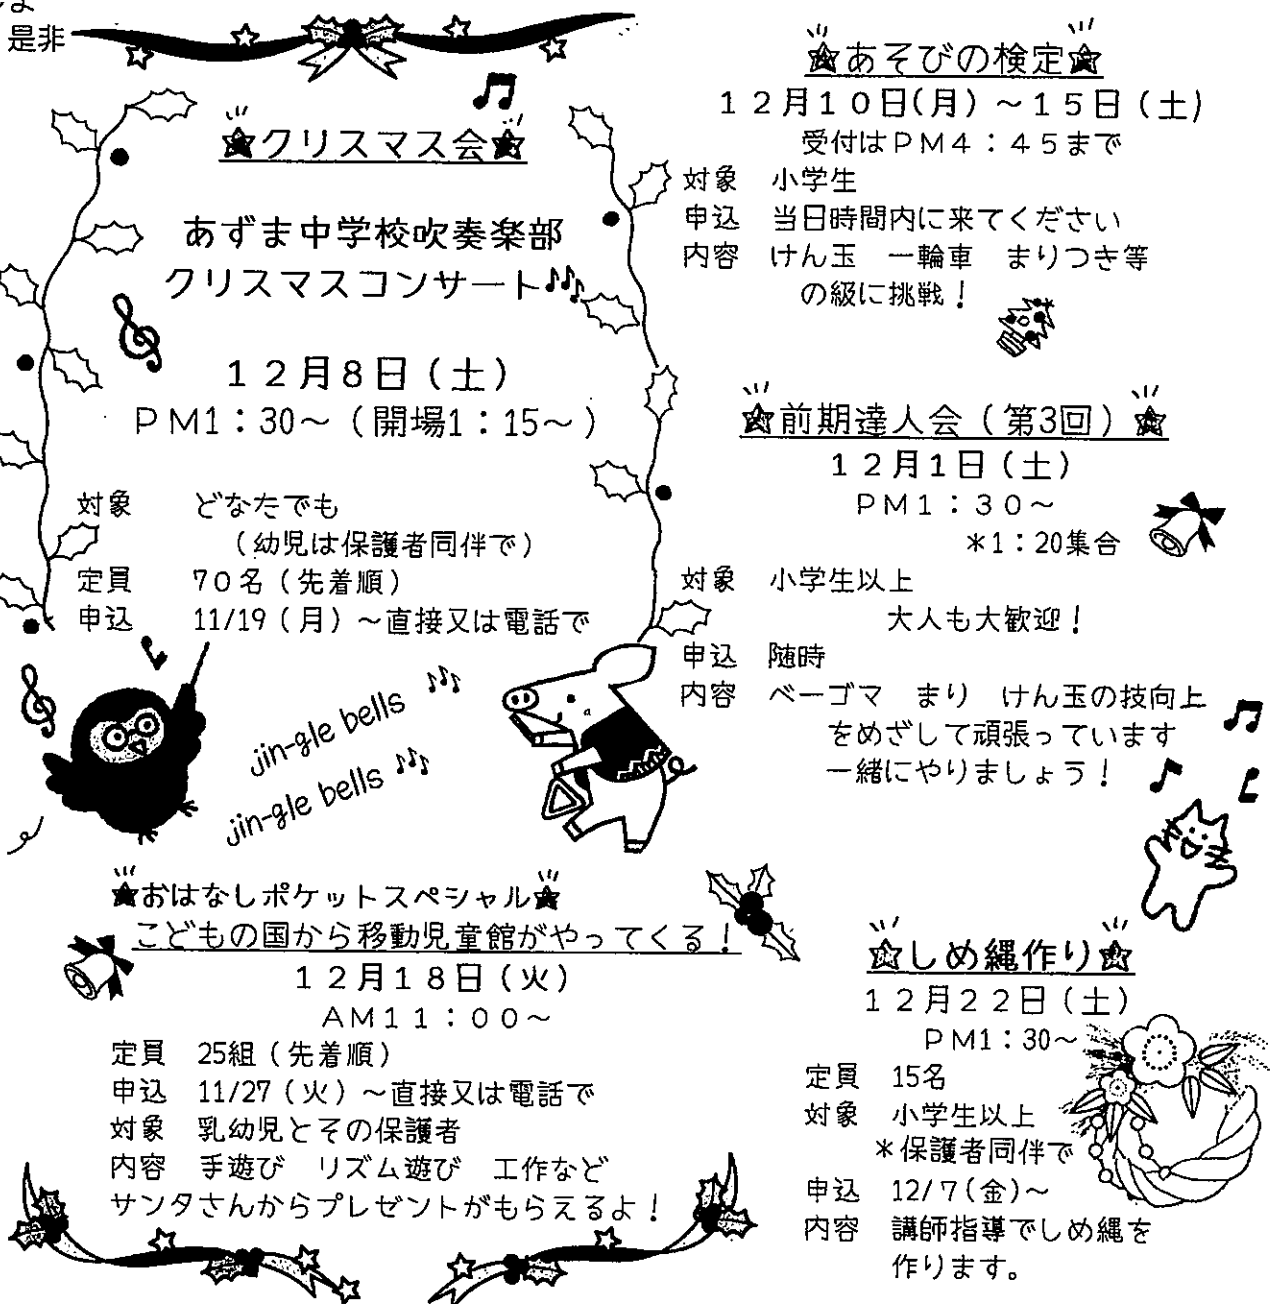 是非
★クリスマス会★
あずま中学校吹奏楽部
クリスマスコンサート♪♪
12月8日(土)
PM1:30~(開場1:15~)
対象 どなたでも
(幼児は保護者同伴で)
定員 70名(先着順)
申込 11/19(月)~直接又は電話で
jin-gle bells
jin-gle bells
★おはなしポケットスペシャル★
こどもの国から移動児童館がやってくる!
12月18日(火)
AM11:00~
定員 25組(先着順)
申込 11/27(火)~直接又は電話で
対象 乳幼児とその保護者
内容 手遊び リズム遊び 工作など
サンタさんからプレゼントがもらえるよ!
★あそびの検定★
12月10日(月)~15日(土)
受付はPM4:45まで
対象 小学生
申込 当日時間内に来てください
内容 けん玉 一輪車 まりつき等
の級に挑戦!
★前期達人会(第3回)★
12月1日(土)
PM1:30~
*1:20集合
対象 小学生以上
大人も大歓迎!
申込 随時
内容 ベーゴマ まり けん玉の技向上
をめざして頑張っています
一緒にやりましょう!
★しめ縄作り★
12月22日(土)
PM1:30~
定員 15名
対象 小学生以上
*保護者同伴で
申込 12/7(金)~
内容 講師指導でしめ縄を
作ります。